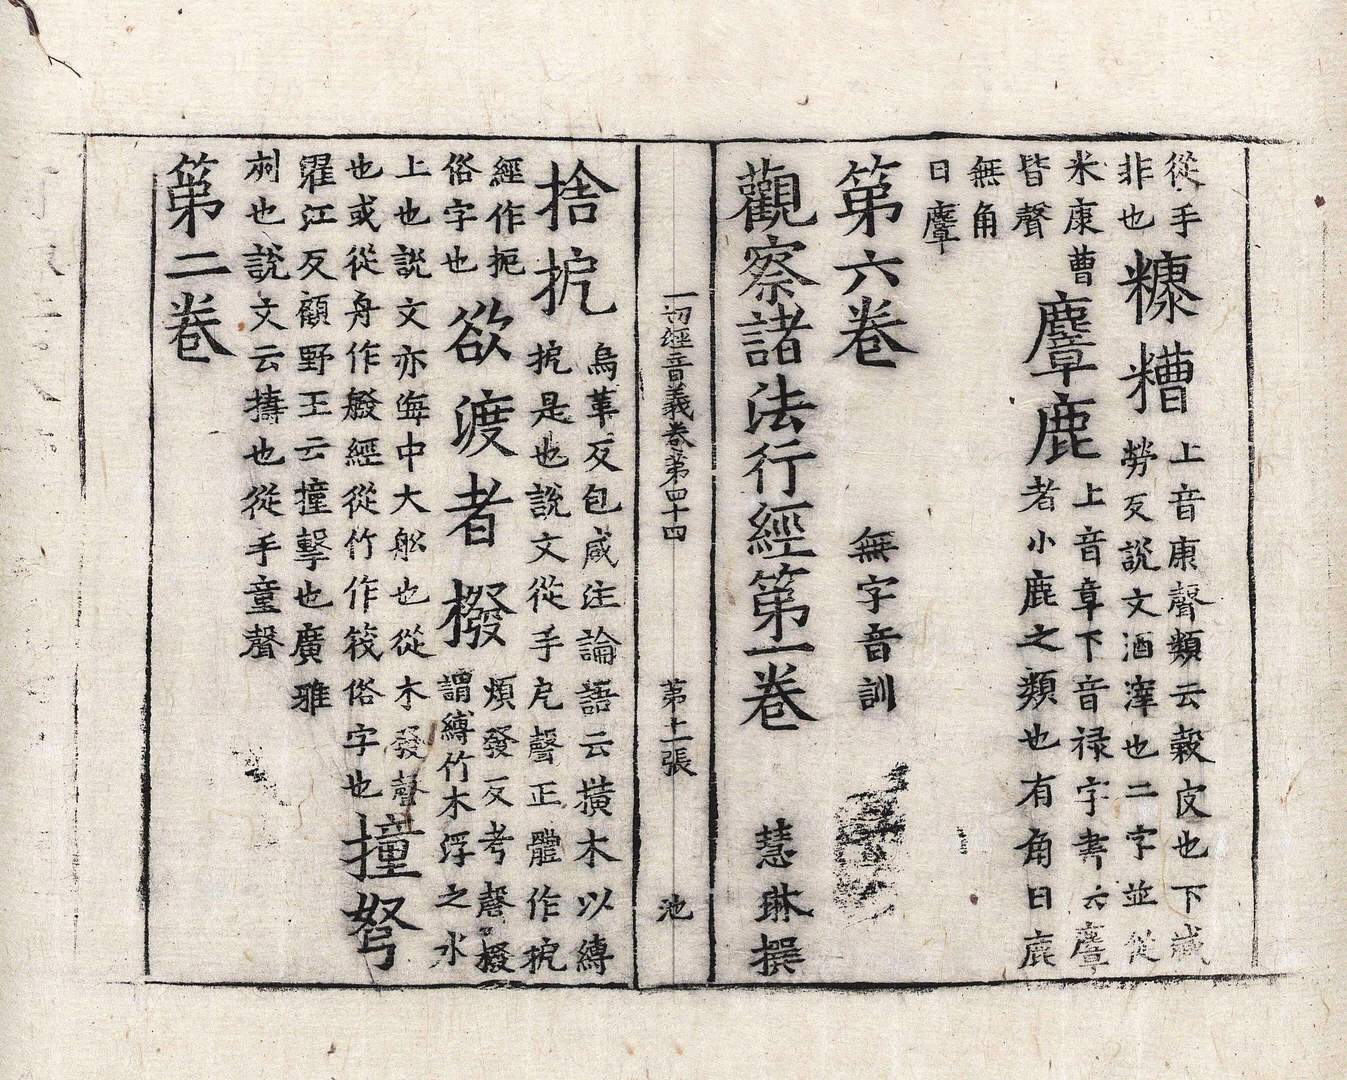 從手
非也
糠糟
上音康聲類云穀皮也下藏
勞反說文酒滓也二字並從
米康曹
皆聲
麞鹿
上音章下音禄字書云麞
者小鹿之類也有角曰鹿
無角
曰麞
第六卷 無字音訓
觀察諸法行經第一卷 慧琳撰
一切經音義卷第四十四 第十一張 池
捨㧖
烏革反包咸注論語云橫木以縛
㧖是也說文從手戹聲正體作㧖
經作扼
俗字也
欲渡者橃
煩發反考聲橃
謂縛竹木浮之水
上也說文亦海中大舩也從木發聲
也或從舟作𦪑經從竹作筏俗字也
撞弩
濯江反顧野王云撞擊也廣雅
刺也說文云擣也從手童聲
第二卷